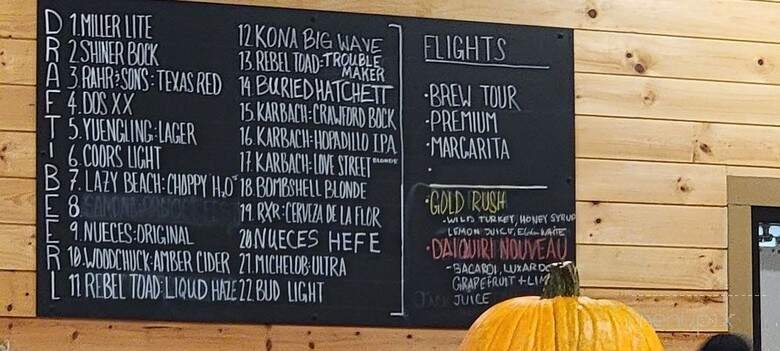 DRAFT BEER
1. MILLER LITE
2. SHINER BOCK
3. RAHR & SONS: TEXAS RED
4. DOS XX
5. YUENGLING: LAGER
6. COORS LIGHT
7. LAZY BEACH: CHOPPY H2O
8.
9. NUECES: ORIGINAL
10. WOODCHUCK: AMBER CIDER
11. REBEL TOAD: LIQUD HAZE
12. KONA BIG WAVE
13. REBEL TOAD: TROUBLE
MAKER
14. BURIED HATCHETT
15. KARBACH: CRAWFORD BOCK
16. KARBACH: HOPADILLO IPA
17. KARBACH: LOVE STREET BLONDE
18. BOMBSHELL BLONDE
19. RXR: CERVEZA DE LA FLOR
20. NUECES HEFE
21. MICHELOB: ULTRA
22. BUD LIGHT
FLIGHTS
• BREW TOUR
• PREMIUM
• MARGARITA
•
• GOLD RUSH
- WILD TURKEY, HONEY SYRUP
LEMON JUICE, EGG WHITE
• DAIQUIRI NOUVEAU
- BACARDI, LUXARDO
GRAPEFRUIT + LIME
JUICE